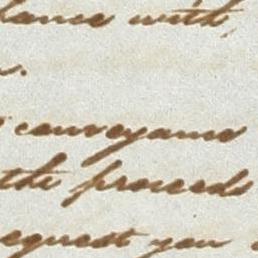 lance with
conveyance
the proceeds
equest you